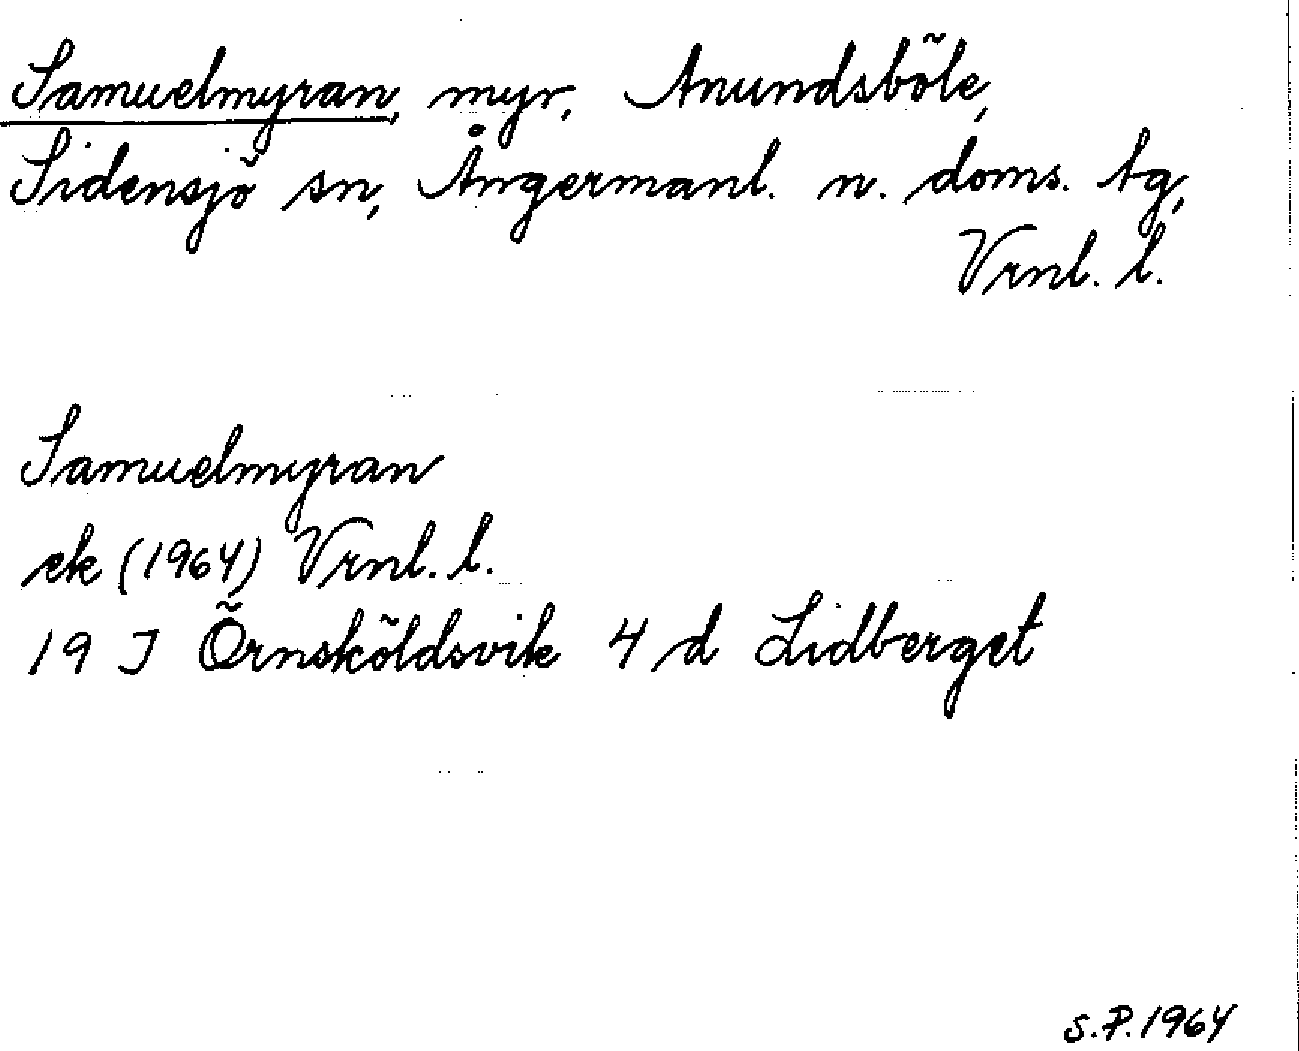 Samuelmyran, myr, Anundsböle,
Sidensjö sn, Ångermanl. n. doms. tg,
Vrnl. l.
Samuelmyran
ek (1964) Vrnl. l.
19 J Örnsköldsvik 4 d Lidberget
S.P. 1964